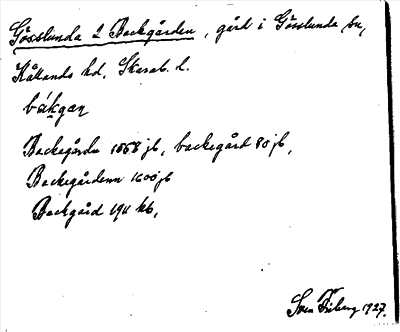 Gösslunda 2 Backgården, gård i Gösslunda sn,
Kållands hd, Skarab. l.
bákgan
Backegårdn 1558 jb, backegård 80 jb,
Backegårdenn 1600 jb
Backgård 1911 kb,
Sven Friberg 1927.